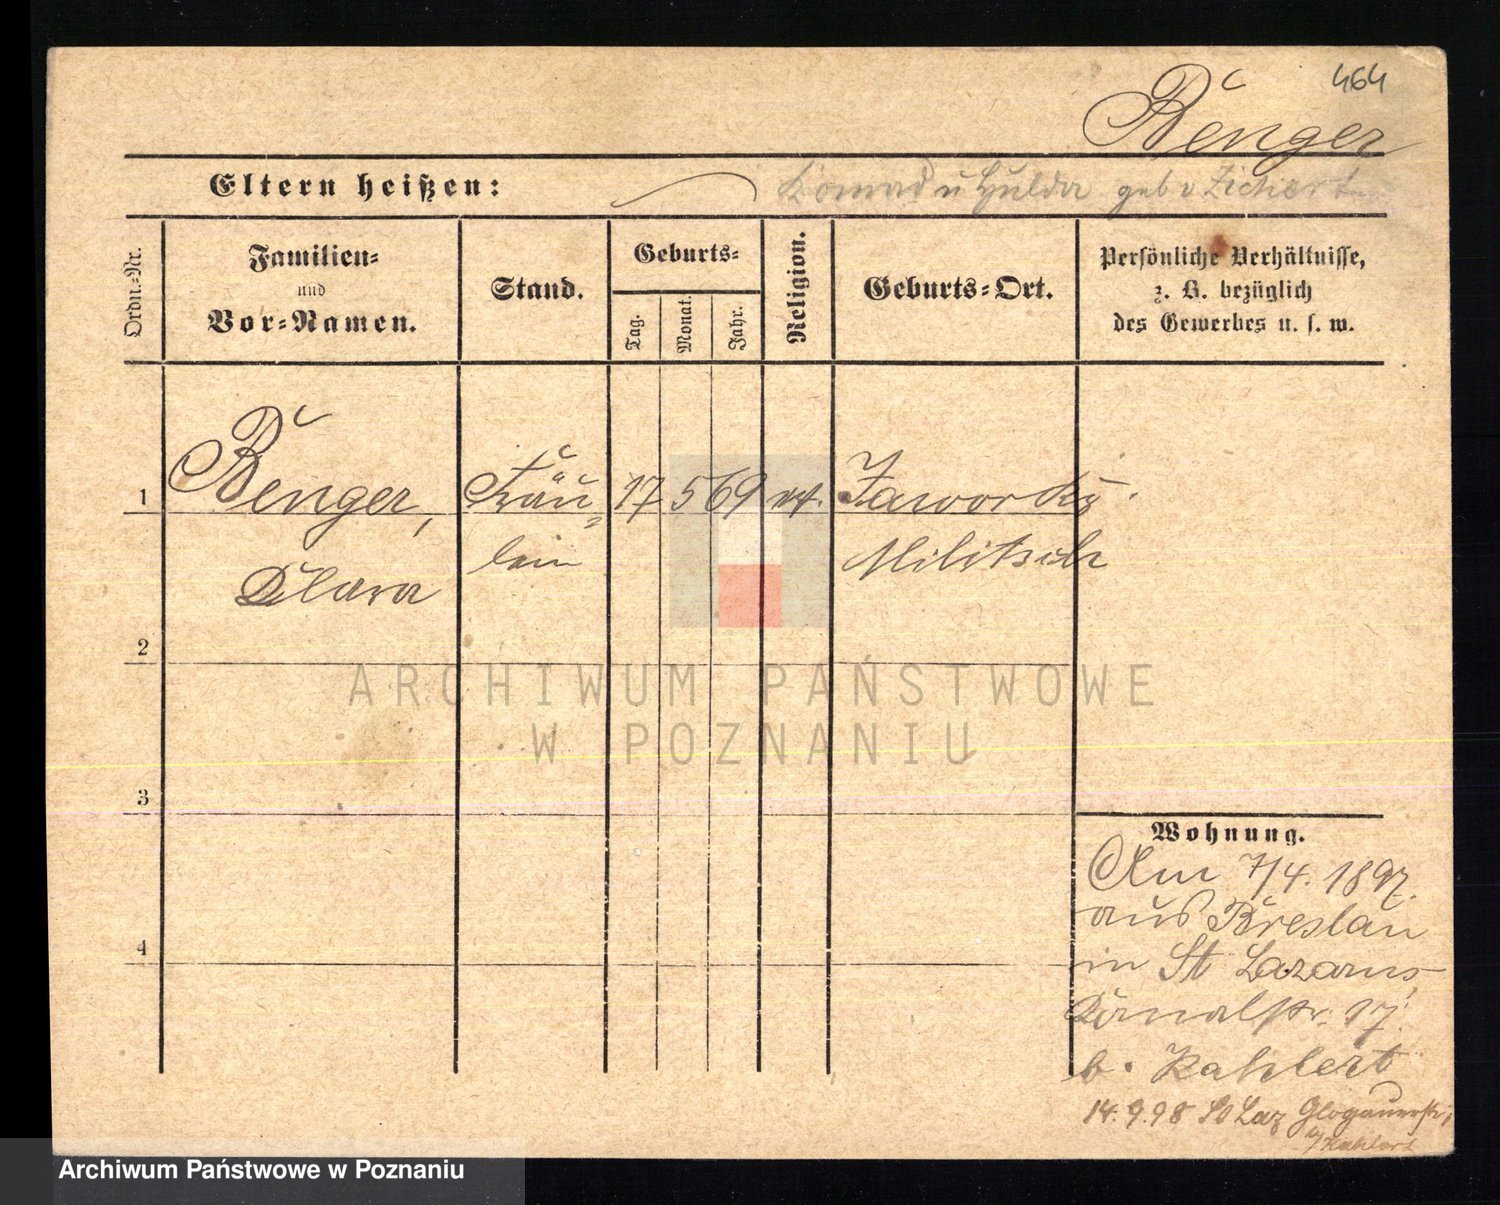 464
Benger
Eltern heißen: Konrad u Hulda geb v Zichert
Ordn.-Nr.
Familien-
und
Vor-Namen.
Stand.
Geburts-
Tag.
Monat.
Jahr.
Religion.
Geburts-Ort.
Persönliche Verhältnisse,
z. B. bezüglich
des Gewerbes u. s. w.
1 Benger, Fräu- 17 5 69 Jaworsky
Clara lein Militsch
2
3
4
Wohnung.
Am 7/4. 1897.
aus Breslau
in St Lazarus,
Kanalstr. 17
b. Kahlert
14.9.98 St Laz Glogauerstr,
b/Kahlert
ARCHIWUM PAŃSTWOWE
W POZNANIU
Archiwum Państwowe w Poznaniu